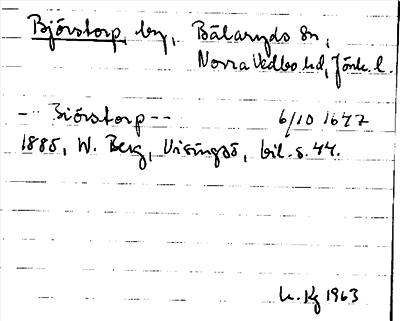 Björstorp, by, Bälaryds sn,
Norra Vedbo hd, Jönk. l.
- Biörstorp -- 6/10 1647
1885, W. Berg, Visingsö, bil. s. 44.
K. Kg 1963